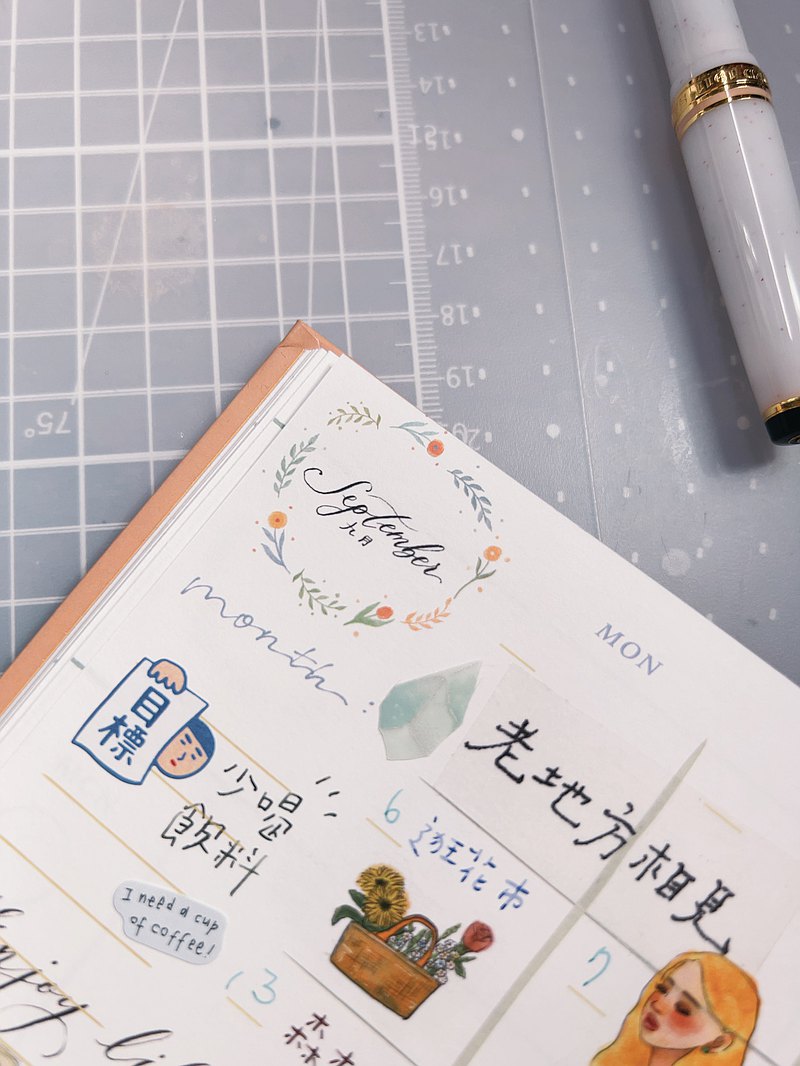 13
14
15
16
17
18
19
20
75°
September
九月
month:
MON
目
標
少喝
飲料
老地方相見
6
逛花市
I need a cup
of coffee!
7
13
enjoy